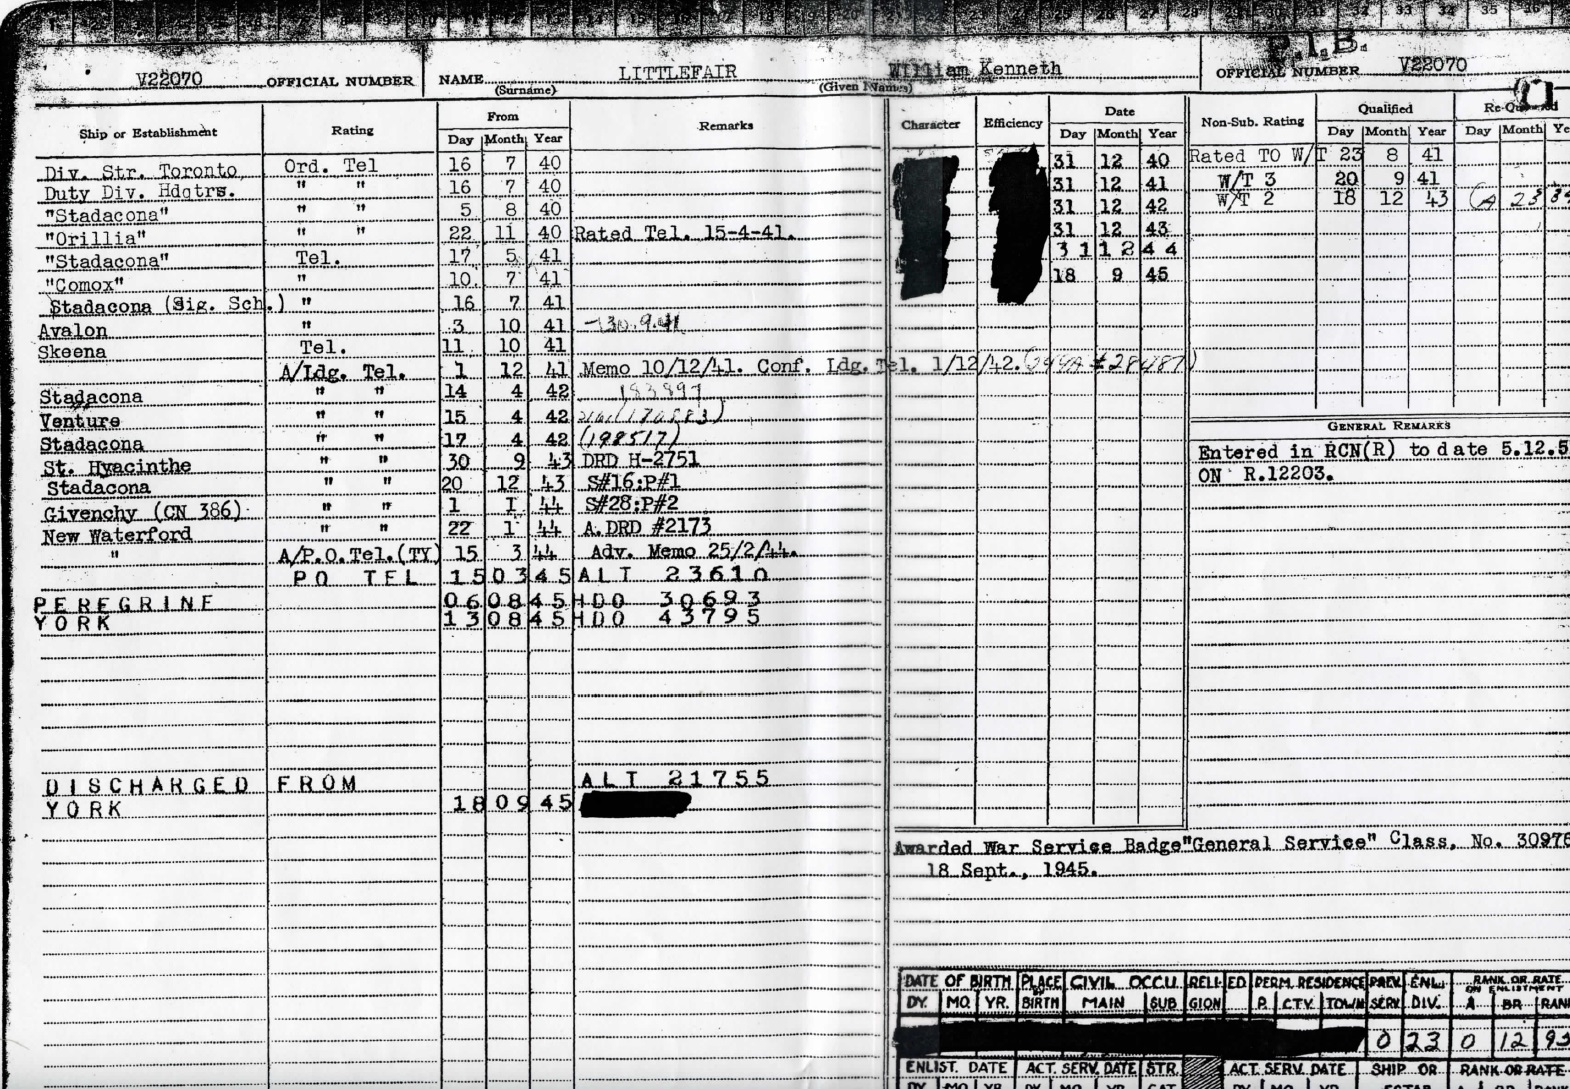 P.I.B.
V22070 OFFICIAL NUMBER NAME LITTLEFAIR William Kenneth OFFICIAL NUMBER V22070
(Surname) (Given Names)
Ship or Establishment Rating From Remarks Character Efficiency Date Non-Sub. Rating Qualified
Day Month Year Day Month Year Day Month Year Day Month
Div. Str. Toronto Ord. Tel 16 7 40 31 12 40 Rated TO W/T 23 8 41
Duty Div. Hdqtrs. " " 16 7 40 31 12 41 W/T 3 20 9 41
"Stadacona" " " 5 8 40 31 12 42 W/T 2 18 12 43
"Orillia" " " 22 11 40 Rated Tel. 15-4-41. 31 12 43
"Stadacona" Tel. 17 5 41 31 12 44
"Comox" " 10 7 41 18 9 45
Stadacona (Sig. Sch.) " 16 7 41
Avalon " 3 10 41 30.9.41
Skeena Tel. 11 10 41
A/Ldg. Tel. 1 12 41 Memo 10/12/41. Conf. Ldg. Tel. 1/12/42.
Stadacona " " 14 4 42 183897
Venture " " 15 4 42
Stadacona " " 17 4 42 (198517)
St. Hyacinthe " " 30 9 43 DRD H-2751
Stadacona " " 20 12 43 S#16:P#1
Givenchy (CN 386) " " 1 1 44 S#28:P#2
New Waterford " " 22 1 44 A.DRD #2173
" A/P.O.Tel.(TY) 15 3 44 Adv. Memo 25/2/44.
PO TEL 15 03 45 ALT 23610
PEREGRINE 06 08 45 HDO 30693
YORK 13 08 45 HDO 43795
DISCHARGED FROM ALT 21755
YORK 18 09 45
GENERAL REMARKS
Entered in RCN(R) to date 5.12.5
ON R.12203.
Awarded War Service Badge "General Service" Class, No. 30976
18 Sept., 1945.
DATE OF BIRTH PLACE OF BIRTH CIVIL OCCU. RELI- ED. PERM. RESIDENCE PREV. ENL. RANK OR RATE ON ENLISTMENT
DY. MO. YR. MAIN SUB GION P. CTY. TOWN SERV. DIV. A BR RANK
0 23 0 12
ENLIST. DATE ACT. SERV. DATE STR. ACT. SERV. DATE SHIP OR RANK OR RATE